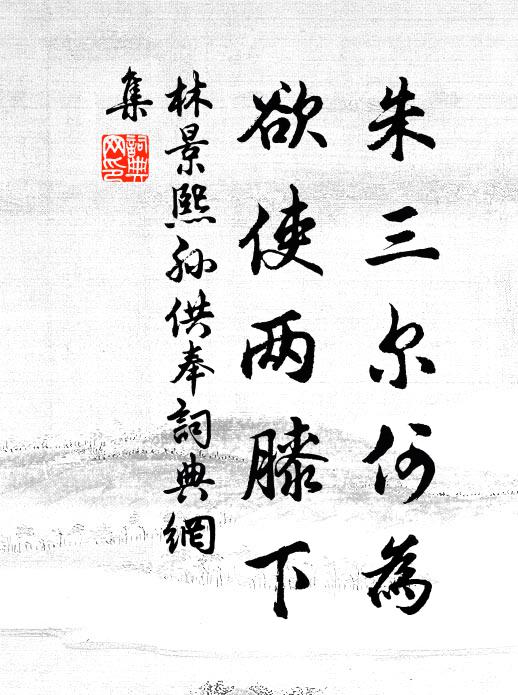 朱三尔何為
欲使两膝下
林景熙孙供奉詞典網
集
詞典
网印